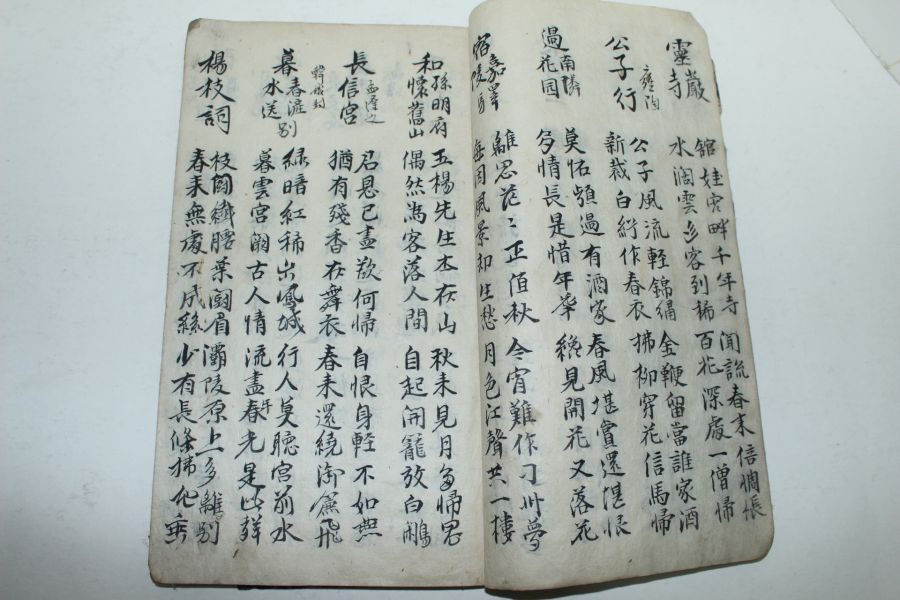 靈巖寺
館娃宮畔千年寺 聞說春來倍惆悵
水濶雲多客到稀 百花深處一僧歸
公子行 雍陶
公子風流輕錦繡 金鞭留當誰家酒
新裁白紵作春衣 拂柳穿花信馬歸
過南隣花园
莫怪頻過有酒家 春風堪賞還堪恨
多情長是惜年華 纔見開花又落花
宿嘉陵驛
離思茫〻正值秋 今宵難作刀州夢
每因風景却生愁 月色江聲共一樓
和孫明府懷舊山
五楊先生本在山 秋來見月多歸思
偶然為客落人間 自起開籠放白鷴
長信宮 孟遲之
君恩已盡欲何歸 自恨身輕不如燕
猶有殘香在舞衣 春來還繞御簾飛
暮春滻水送別 韓琮
綠暗紅稀出鳳城 行人莫聽宮前水
暮雲宮闕古人情 流盡春年光是此聲
楊枝詞
枝鬪纖腰葉鬪眉 灞陵原上多離別
春來無處不成絲 少有長條拂地垂